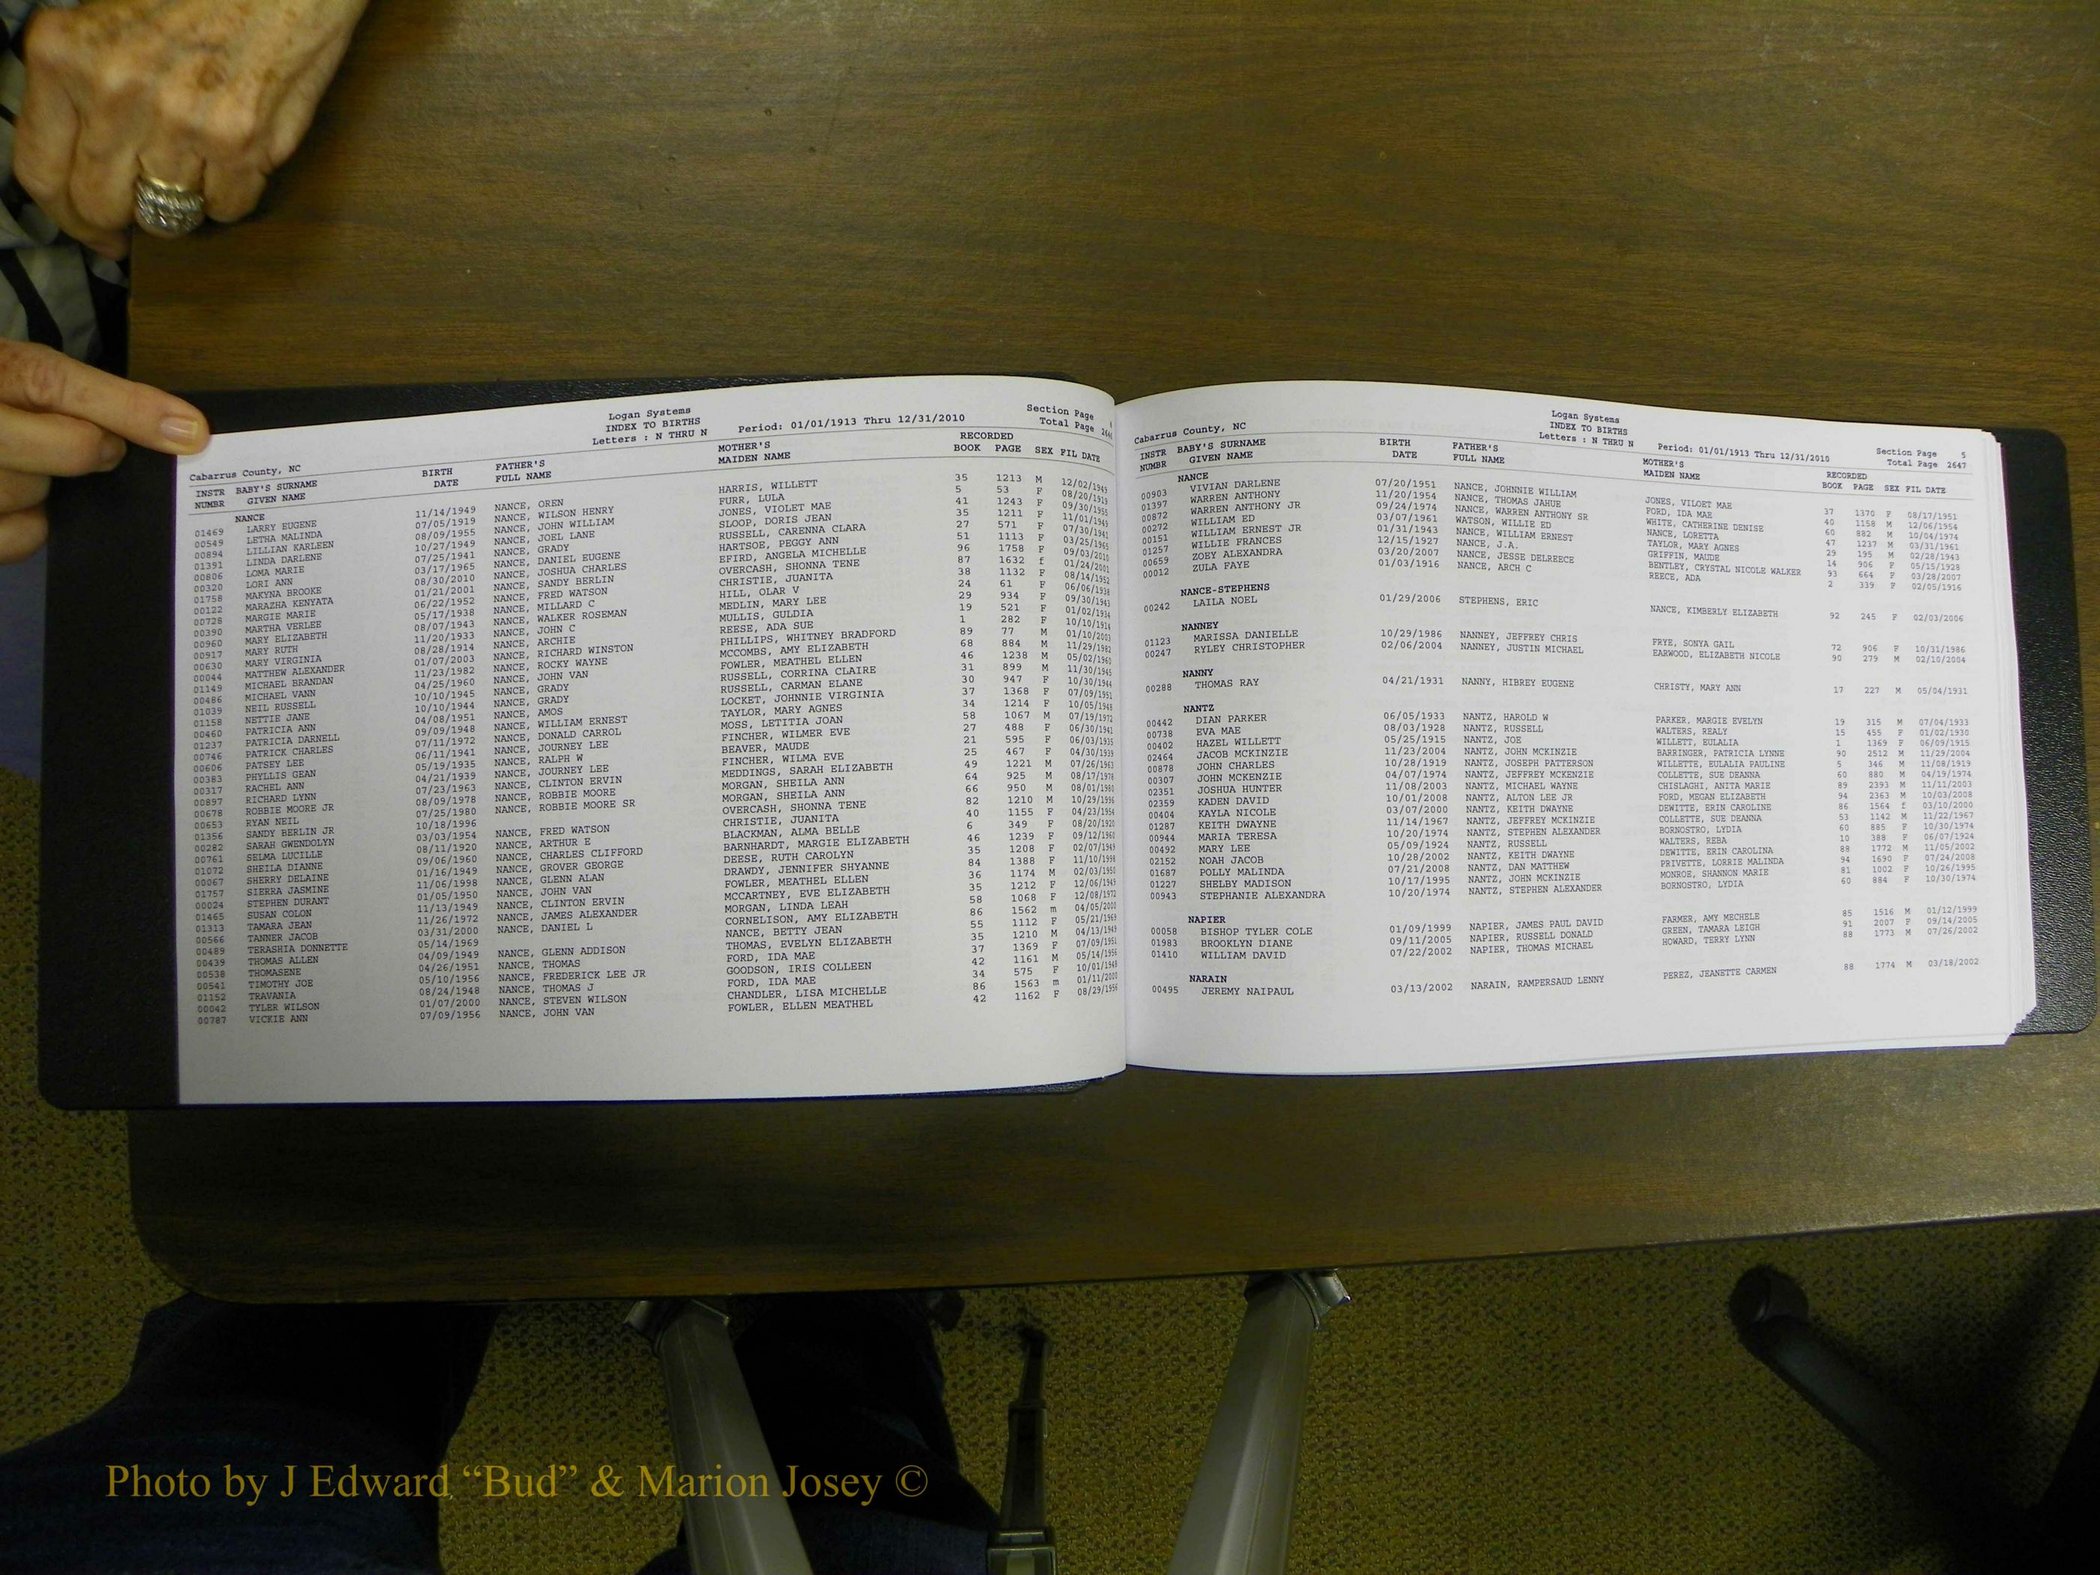 Logan Systems
INDEX TO BIRTHS
Letters : N THRU N Period: 01/01/1913 Thru 12/31/2010 Section Page
Total Page
Cabarrus County, NC
INSTR NUMBR BABY'S SURNAME GIVEN NAME BIRTH DATE FATHER'S FULL NAME MOTHER'S MAIDEN NAME RECORDED BOOK PAGE SEX FIL DATE
NANCE
01469 LARRY EUGENE 11/14/1949 NANCE, OREN HARRIS, WILLETT 35 1213 M 12/02/1949
00549 LETHA MALINDA 07/05/1919 NANCE, WILSON HENRY FURR, LULA 5 53 F 08/20/1919
00894 LILLIAN KARLEEN 08/09/1955 NANCE, JOHN WILLIAM JONES, VIOLET MAE 41 1243 F 09/30/1955
01391 LINDA DARLENE 10/27/1949 NANCE, JOEL LANE SLOOP, DORIS JEAN 35 1211 F 11/01/1949
00806 LOMA MARIE 07/25/1941 NANCE, GRADY RUSSELL, CARENNA CLARA 27 571 F 07/30/1941
00320 LORI ANN 03/17/1965 NANCE, DANIEL EUGENE HARTSOE, PEGGY ANN 51 1113 F 03/25/1965
01758 MAKYNA BROOKE 08/30/2010 NANCE, JOSHUA CHARLES EFIRD, ANGELA MICHELLE 96 1758 F 09/03/2010
00122 MARAZHA KENYATA 01/21/2001 NANCE, SANDY BERLIN OVERCASH, SHONNA TENE 87 1632 f 01/24/2001
00728 MARGIE MARIE 06/22/1952 NANCE, FRED WATSON CHRISTIE, JUANITA 38 1132 F 08/14/1952
00390 MARTHA VERLEE 05/17/1938 NANCE, MILLARD C HILL, OLAR V 24 61 F 06/06/1938
00960 MARY ELIZABETH 08/07/1943 NANCE, WALKER ROSEMAN MEDLIN, MARY LEE 29 934 F 09/30/1943
00917 MARY RUTH 11/20/1933 NANCE, JOHN C MULLIS, GULDIA 19 521 F 01/02/1934
00630 MARY VIRGINIA 08/28/1914 NANCE, ARCHIE REESE, ADA SUE 1 282 F 10/10/1914
00044 MATTHEW ALEXANDER 01/07/2003 NANCE, RICHARD WINSTON PHILLIPS, WHITNEY BRADFORD 89 77 M 01/10/2003
01149 MICHAEL BRANDAN 11/23/1982 NANCE, ROCKY WAYNE MCCOMBS, AMY ELIZABETH 68 884 M 11/29/1982
00486 MICHAEL VANN 04/25/1960 NANCE, JOHN VAN FOWLER, MEATHEL ELLEN 46 1238 M 05/02/1960
01039 NEIL RUSSELL 10/10/1945 NANCE, GRADY RUSSELL, CORRINA CLAIRE 31 899 M 11/30/1945
01158 NETTIE JANE 10/10/1944 NANCE, GRADY RUSSELL, CARMAN ELANE 30 947 F 10/30/1944
00460 PATRICIA ANN 04/08/1951 NANCE, AMOS LOCKET, JOHNNIE VIRGINIA 37 1368 F 07/09/1951
01237 PATRICIA DARNELL 09/09/1948 NANCE, WILLIAM ERNEST TAYLOR, MARY AGNES 34 1214 F 10/05/1948
00746 PATRICK CHARLES 07/11/1972 NANCE, DONALD CARROL MOSS, LETITIA JOAN 58 1067 M 07/19/1972
00606 PATSEY LEE 06/11/1941 NANCE, JOURNEY LEE FINCHER, WILMER EVE 27 488 F 06/30/1941
00383 PHYLLIS GEAN 05/19/1935 NANCE, RALPH W BEAVER, MAUDE 21 595 F 06/03/1935
00317 RACHEL ANN 04/21/1939 NANCE, JOURNEY LEE FINCHER, WILMA EVE 25 467 F 04/30/1939
00897 RICHARD LYNN 07/23/1963 NANCE, CLINTON ERVIN MEDDINGS, SARAH ELIZABETH 49 1221 M 07/26/1963
00678 ROBBIE MOORE JR 08/09/1978 NANCE, ROBBIE MOORE MORGAN, SHEILA ANN 64 925 M 08/17/1978
00653 RYAN NEIL 07/25/1980 NANCE, ROBBIE MOORE SR MORGAN, SHEILA ANN 66 950 M 08/01/1980
01356 SANDY BERLIN JR 10/18/1996 OVERCASH, SHONNA TENE 82 1210 M 10/29/1996
00282 SARAH GWENDOLYN 03/03/1954 NANCE, FRED WATSON CHRISTIE, JUANITA 40 1155 F 04/23/1954
00761 SELMA LUCILLE 08/11/1920 NANCE, ARTHUR E BLACKMAN, ALMA BELLE 6 349 F 08/20/1920
01072 SHEILA DIANNE 09/06/1960 NANCE, CHARLES CLIFFORD BARNHARDT, MARGIE ELIZABETH 46 1239 F 09/12/1960
00067 SHERRY DELAINE 01/16/1949 NANCE, GROVER GEORGE DEESE, RUTH CAROLYN 35 1208 F 02/07/1949
01757 SIERRA JASMINE 11/06/1998 NANCE, GLENN ALAN DRAWDY, JENNIFER SHYANNE 84 1388 F 11/10/1998
00024 STEPHEN DURANT 01/05/1950 NANCE, JOHN VAN FOWLER, MEATHEL ELLEN 36 1174 M 02/03/1950
01465 SUSAN COLON 11/13/1949 NANCE, CLINTON ERVIN MCCARTNEY, EVE ELIZABETH 35 1212 F 12/06/1949
01313 TAMARA JEAN 11/26/1972 NANCE, JAMES ALEXANDER MORGAN, LINDA LEAH 58 1068 F 12/08/1972
00566 TANNER JACOB 03/31/2000 NANCE, DANIEL L CORNELISON, AMY ELIZABETH 86 1562 m 04/05/2000
00489 TERASHIA DONNETTE 05/14/1969 NANCE, BETTY JEAN 55 1112 F 05/21/1969
00439 THOMAS ALLEN 04/09/1949 NANCE, GLENN ADDISON THOMAS, EVELYN ELIZABETH 35 1210 M 04/13/1949
00538 THOMASENE 04/26/1951 NANCE, THOMAS FORD, IDA MAE 37 1369 F 07/09/1951
00541 TIMOTHY JOE 05/10/1956 NANCE, FREDERICK LEE JR GOODSON, IRIS COLLEEN 42 1161 M 05/14/1956
01152 TRAVANIA 08/24/1948 NANCE, THOMAS J FORD, IDA MAE 34 575 F 10/01/1948
00042 TYLER WILSON 01/07/2000 NANCE, STEVEN WILSON CHANDLER, LISA MICHELLE 86 1563 m 01/11/2000
00787 VICKIE ANN 07/09/1956 NANCE, JOHN VAN FOWLER, ELLEN MEATHEL 42 1162 F 08/29/1956
Logan Systems
INDEX TO BIRTHS
Letters : N THRU N Period: 01/01/1913 Thru 12/31/2010 Section Page 5
Total Page 2647
Cabarrus County, NC
INSTR NUMBR BABY'S SURNAME GIVEN NAME BIRTH DATE FATHER'S FULL NAME MOTHER'S MAIDEN NAME RECORDED BOOK PAGE SEX FIL DATE
NANCE
00903 VIVIAN DARLENE 07/20/1951 NANCE, JOHNNIE WILLIAM JONES, VILOET MAE 37 1370 F 08/17/1951
01397 WARREN ANTHONY 11/20/1954 NANCE, THOMAS JAHUE FORD, IDA MAE 40 1158 M 12/06/1954
00872 WARREN ANTHONY JR 09/24/1974 NANCE, WARREN ANTHONY SR WHITE, CATHERINE DENISE 60 882 M 10/04/1974
00272 WILLIAM ED 03/07/1961 WATSON, WILLIE ED NANCE, LORETTA 47 1237 M 03/31/1961
00151 WILLIAM ERNEST JR 01/31/1943 NANCE, WILLIAM ERNEST TAYLOR, MARY AGNES 29 195 M 02/28/1943
01257 WILLIE FRANCES 12/15/1927 NANCE, J.A. GRIFFIN, MAUDE 14 906 F 05/15/1928
00659 ZOEY ALEXANDRA 03/20/2007 NANCE, JESSE DELREECE BENTLEY, CRYSTAL NICOLE WALKER 93 664 F 03/28/2007
00012 ZULA FAYE 01/03/1916 NANCE, ARCH C REECE, ADA 2 339 F 02/05/1916
NANCE-STEPHENS
00242 LAILA NOEL 01/29/2006 STEPHENS, ERIC NANCE, KIMBERLY ELIZABETH 92 245 F 02/03/2006
NANNEY
01123 MARISSA DANIELLE 10/29/1986 NANNEY, JEFFREY CHRIS FRYE, SONYA GAIL 72 906 F 10/31/1986
00247 RYLEY CHRISTOPHER 02/06/2004 NANNEY, JUSTIN MICHAEL EARWOOD, ELIZABETH NICOLE 90 279 M 02/10/2004
NANNY
00288 THOMAS RAY 04/21/1931 NANNY, HIBREY EUGENE CHRISTY, MARY ANN 17 227 M 05/04/1931
NANTZ
00442 DIAN PARKER 06/05/1933 NANTZ, HAROLD W PARKER, MARGIE EVELYN 19 315 M 07/04/1933
00738 EVA MAE 08/03/1928 NANTZ, RUSSELL WALTERS, REALY 15 455 F 01/02/1930
00402 HAZEL WILLETT 05/25/1915 NANTZ, JOE WILLETT, EULALIA 1 1369 F 06/09/1915
02464 JACOB MCKINZIE 11/23/2004 NANTZ, JOHN MCKINZIE BARRINGER, PATRICIA LYNNE 90 2512 M 11/29/2004
00878 JOHN CHARLES 10/28/1919 NANTZ, JOSEPH PATTERSON WILLETTE, EULALIA PAULINE 5 346 M 11/08/1919
00307 JOHN MCKENZIE 04/07/1974 NANTZ, JEFFREY MCKENZIE COLLETTE, SUE DEANNA 60 880 M 04/19/1974
02351 JOSHUA HUNTER 11/08/2003 NANTZ, MICHAEL WAYNE CHISLAGHI, ANITA MARIE 89 2393 M 11/11/2003
02359 KADEN DAVID 10/01/2008 NANTZ, ALTON LEE JR FORD, MEGAN ELIZABETH 94 2363 M 10/03/2008
00404 KAYLA NICOLE 03/07/2000 NANTZ, KEITH DWAYNE DEWITTE, ERIN CAROLINE 86 1564 f 03/10/2000
01287 KEITH DWAYNE 11/14/1967 NANTZ, JEFFREY MCKENZIE COLLETTE, SUE DEANNA 53 1142 M 11/22/1967
00944 MARIA TERESA 10/20/1974 NANTZ, STEPHEN ALEXANDER BORNOSTRO, LYDIA 60 885 F 10/30/1974
00492 MARY LEE 05/09/1924 NANTZ, RUSSELL WALTERS, REBA 10 388 F 06/07/1924
02152 NOAH JACOB 10/28/2002 NANTZ, KEITH DWAYNE DEWITTE, ERIN CAROLINA 88 1772 M 11/05/2002
01687 POLLY MALINDA 07/21/2008 NANTZ, DAN MATTHEW PRIVETTE, LORRIE MALINDA 94 1690 F 07/24/2008
01227 SHELBY MADISON 10/17/1995 NANTZ, JOHN MCKINZIE MONROE, SHANNON MARIE 81 1002 F 10/26/1995
00943 STEPHANIE ALEXANDRA 10/20/1974 NANTZ, STEPHEN ALEXANDER BORNOSTRO, LYDIA 60 884 F 10/30/1974
NAPIER
00058 BISHOP TYLER COLE 01/09/1999 NAPIER, JAMES PAUL DAVID FARMER, AMY MECHELE 85 1516 M 01/12/1999
01983 BROOKLYN DIANE 09/11/2005 NAPIER, RUSSELL DONALD GREEN, TAMARA LEIGH 91 2007 F 09/14/2005
01410 WILLIAM DAVID 07/22/2002 NAPIER, THOMAS MICHAEL HOWARD, TERRY LYNN 88 1773 M 07/26/2002
NARAIN
00495 JEREMY NAIPAUL 03/13/2002 NARAIN, RAMPERSAUD LENNY PEREZ, JEANETTE CARMEN 88 1774 M 03/18/2002
Photo by J Edward "Bud" & Marion Josey ©